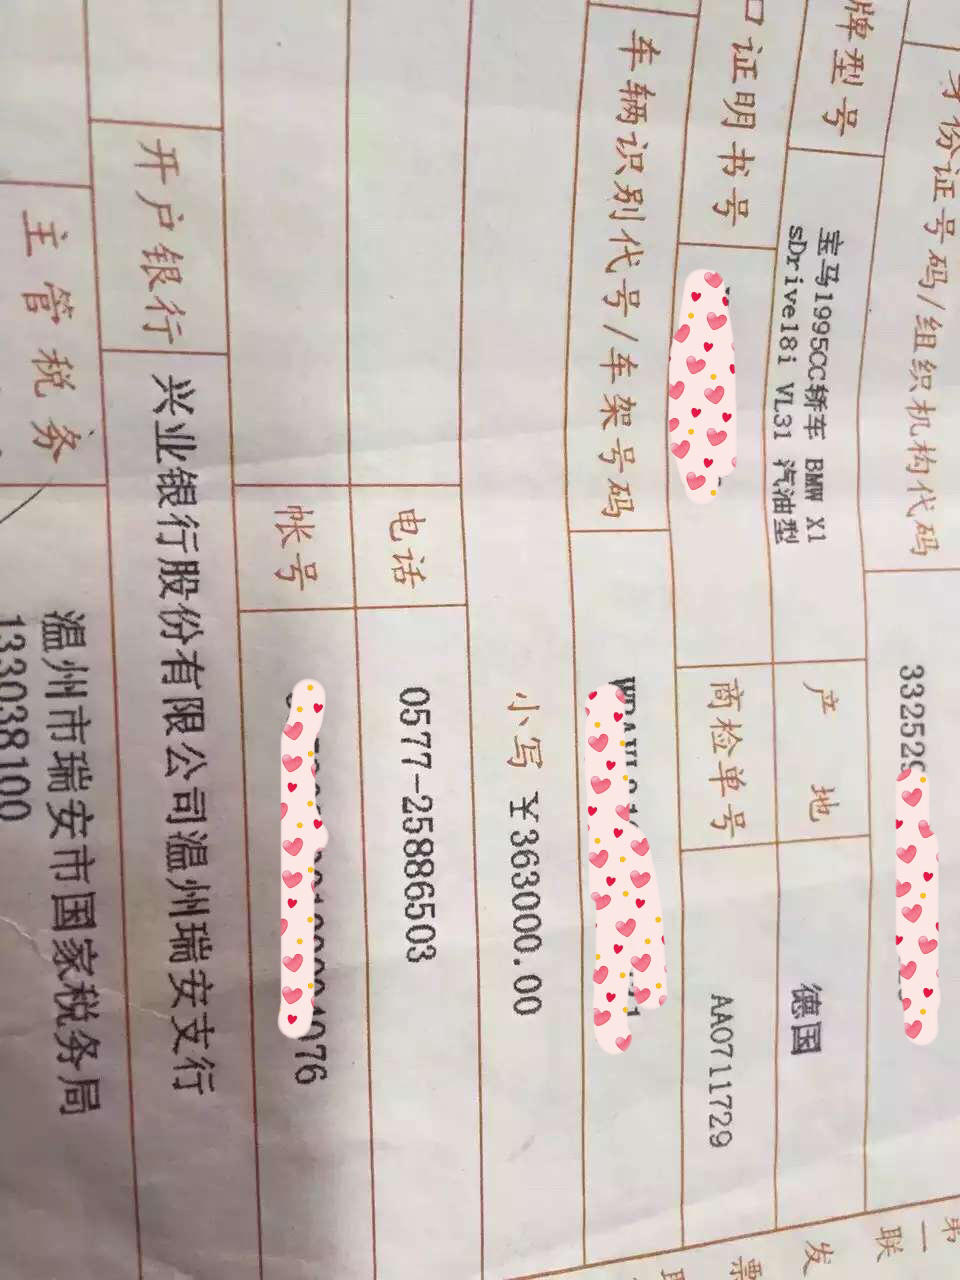 身份证号码/组织机构代码 332529
牌型号 宝马1995CC轿车 BMW X1
sDrive18i VL31 汽油型 产地 德国
口证明书号 商检单号 AA0711729
车辆识别代号/车架号码
小写 ￥363000.00
电话 0577-25886503
帐号 076
开户银行 兴业银行股份有限公司温州瑞安支行
主管税务 温州市瑞安市国家税务局
133038100
第一联 发票联